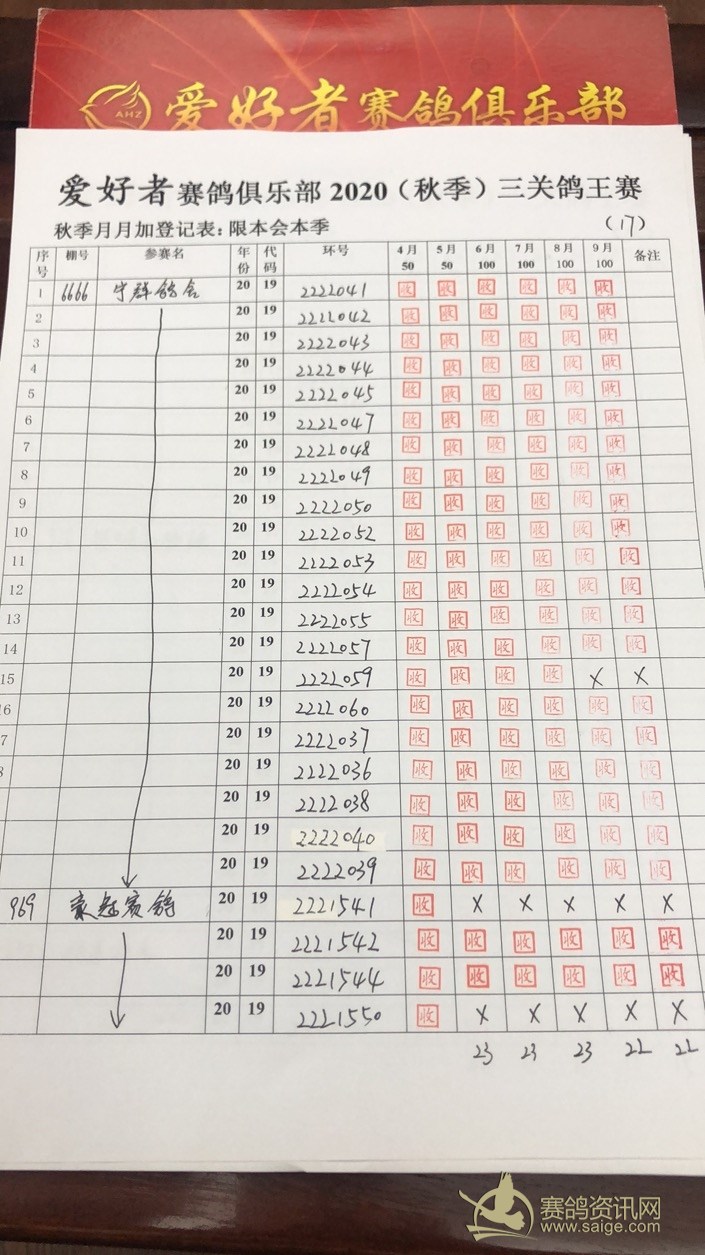 AHZ 爱好者赛鸽俱乐部
爱好者赛鸽俱乐部2020（秋季）三关鸽王赛
秋季月月加登记表：限本会本季 （17）
序号 棚号 参赛名 年份 代码 环号 4月50 5月50 6月100 7月100 8月100 9月100 备注
1 6666 宁群鸽舍 20 19 2222041 收 收 收 收 收 收
2 20 19 2222042 收 收 收 收 收 收
3 20 19 2222043 收 收 收 收 收 收
4 20 19 2222044 收 收 收 收 收 收
5 20 19 2222045 收 收 收 收 收 收
6 20 19 2222047 收 收 收 收 收 收
7 20 19 2222048 收 收 收 收 收 收
8 20 19 2222049 收 收 收 收 收 收
9 20 19 2222050 收 收 收 收 收 收
10 20 19 2222052 收 收 收 收 收 收
11 20 19 2222053 收 收 收 收 收 收
12 20 19 2222054 收 收 收 收 收 收
13 20 19 2222055 收 收 收 收 收 收
14 20 19 2222057 收 收 收 收 收 收
15 20 19 2222059 收 收 收 收 X X
16 20 19 2222060 收 收 收 收 收 收
7 20 19 2222037 收 收 收 收 收 收
8 20 19 2222036 收 收 收 收 收 收
20 19 2222038 收 收 收 收 收 收
20 19 2222040 收 收 收 收 收 收
20 19 2222039 收 收 收 收 收 收
969 豪冠赛鸽 20 19 2221541 收 X X X X X
20 19 2221542 收 收 收 收 收 收
20 19 2221544 收 收 收 收 收 收
20 19 2221550 收 X X X X X
23 23 23 22 22
赛鸽资讯网
www.saige.com